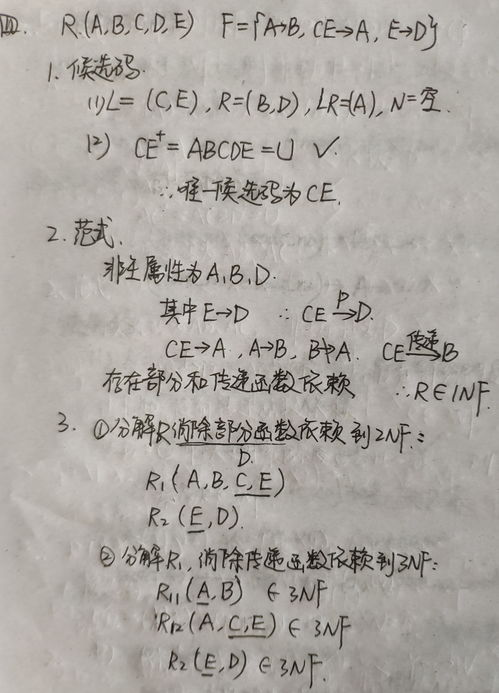 四. R(A,B,C,D,E) F={A→B, CE→A, E→D}
1. 候选码.
(1) L=(C,E), R=(B,D), LR=(A), N=空.
(2) CE⁺=ABCDE=U ✓.
∴唯一候选码为CE.
2. 范式.
非主属性为A,B,D.
其中E→D ∴CE P→ D.
CE→A, A→B, B↛A. CE 传递→ B
存在部分和传递函数依赖 ∴R∈1NF.
3. ①分解R消除部分函数依赖到2NF:
D.
R₁(A,B,C,E)
R₂(E,D).
②分解R₁,消除传递函数依赖到3NF:
R₁₁(A,B) ∈3NF
R₁₂(A,C,E) ∈3NF
R₂(E,D) ∈3NF.